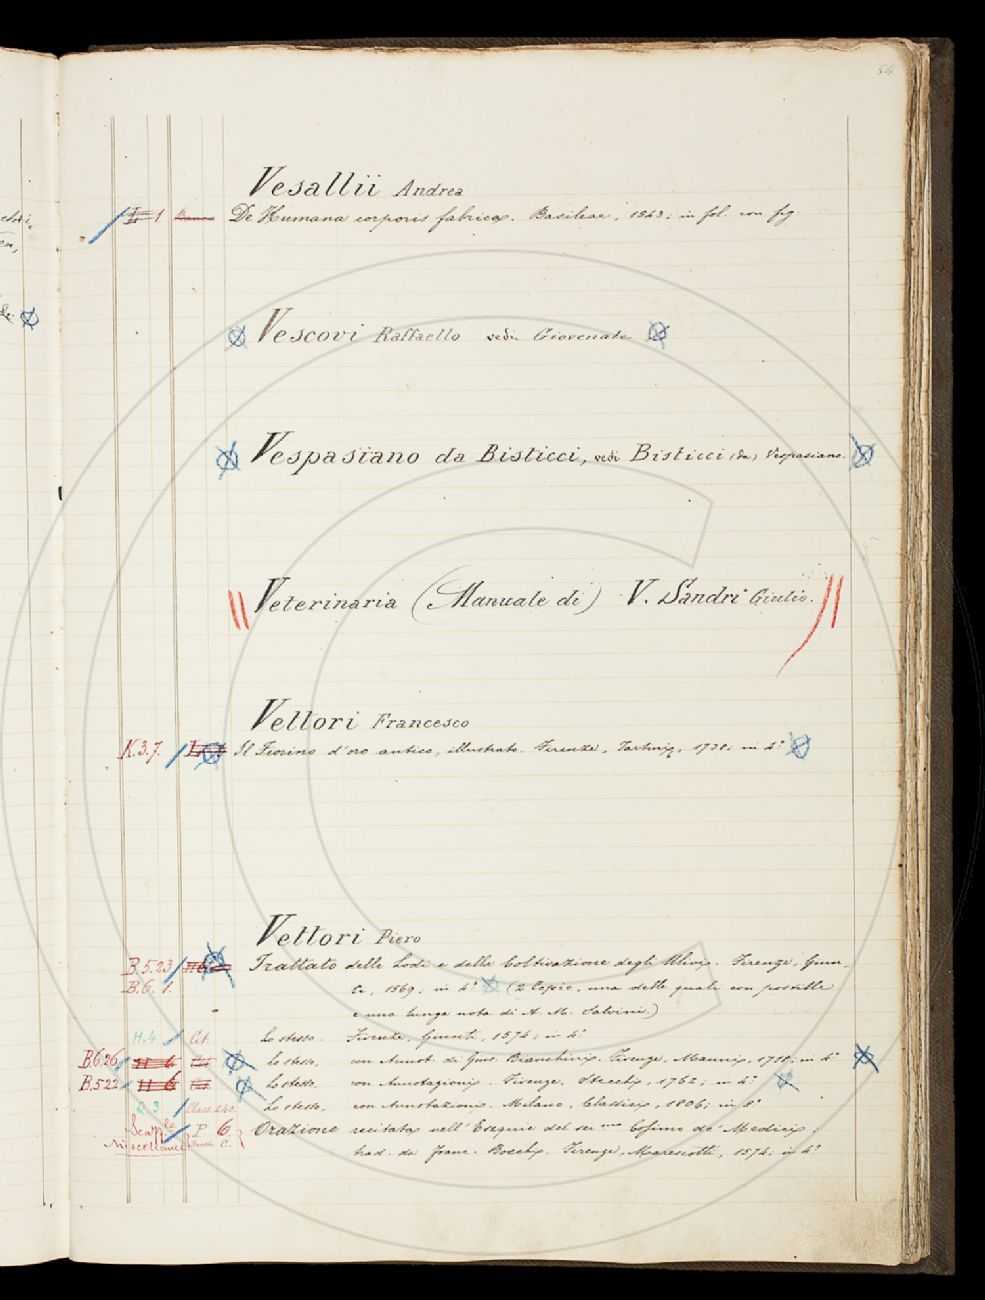 54
Vesallii Andrea
I. 1 De Humana corporis fabrica. Basileae, 1543; in fol. con fig.
Vescovi Raffaello vedi Giovenale
Vespasiano da Bisticci, vedi Bisticci (da) Vespasiano.
Veterinaria (Manuale di) V. Sandri Giulio.
Vettori Francesco
K.3.7. Il Fiorino d'oro antico, illustrato. Firenze, Tartini, 1738; in 4º
Vettori Piero
B.5.23 Trattato delle Lodi e della Coltivazione degli Ulivi. Firenze, Giun-
B.6.1. ti, 1569; in 4º (2 Copie, una delle quali con postille
e una lunga nota di A. M. Salvini.)
H.4 Cit. Lo stesso. Firenze, Giunti, 1574; in 4º
B.6.26 11 6 Lo stesso, con Annot. di Gius. Bianchini. Firenze, Manni, 1718; in 4º
B.5.22 11 6 Lo stesso, con Annotazioni. Firenze, Stecchi, 1762; in 4º
Q.3 Class. 240. Lo stesso, con Annotazioni. Milano, Classici, 1806; in 8º
P. 6. Orazione recitata nell'Esequie del ser.mo Cosimo de' Medici;
Miscellanea C. trad. da Franc. Bocchi. Firenze, Marescotti, 1574; in 4º